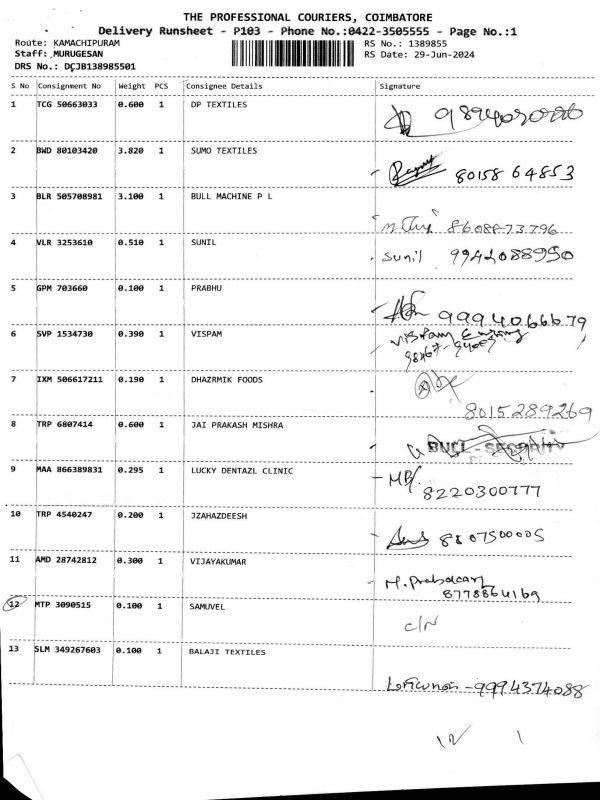 THE PROFESSIONAL COURIERS, COIMBATORE
Delivery Runsheet - P103 - Phone No.:0422-3505555 - Page No.:1
Route: KAMACHIPURAM RS No.: 1389855
Staff: MURUGESAN RS Date: 29-Jun-2024
DRS No.: DCJB138985501
S No Consignment No Weight PCS Consignee Details Signature
1 TCG 50663033 0.600 1 DP TEXTILES
2 BWD 80103420 3.820 1 SUMO TEXTILES
80158 64853
3 BLR 505708981 3.100 1 BULL MACHINE P L
8608873796
4 VLR 3253610 0.510 1 SUNIL
Sunil 9942088950
5 GPM 703660 0.100 1 PRABHU
9994066679
6 SVP 1534730 0.390 1 VISPAM
7 IXM 506617211 0.190 1 DHAZRMIK FOODS
8015289269
8 TRP 6807414 0.600 1 JAI PRAKASH MISHRA
BULL - SECURITY
9 MAA 866389831 0.295 1 LUCKY DENTAZL CLINIC
8220300777
10 TRP 4540247 0.200 1 JZAHAZDEESH
11 AMD 28742812 0.300 1 VIJAYAKUMAR
12 MTP 3090515 0.100 1 SAMUVEL
C/N
13 SLM 349267603 0.100 1 BALAJI TEXTILES
9994374088